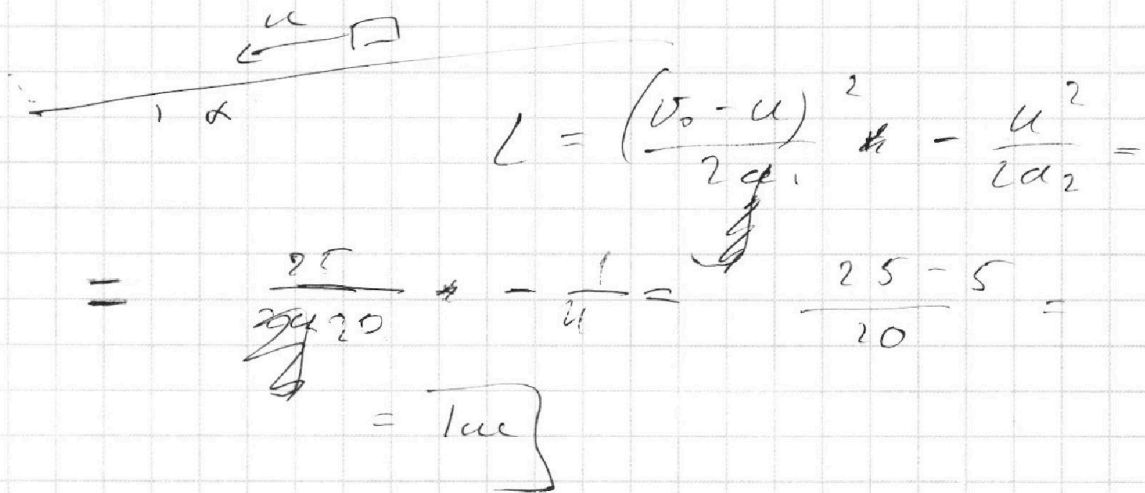 u
α
L = (v₀ - u)² / 2a₁ - u² / 2a₂ =
= 25 / 20 - 1 / 4 = 25 - 5 / 20 =
= 1м